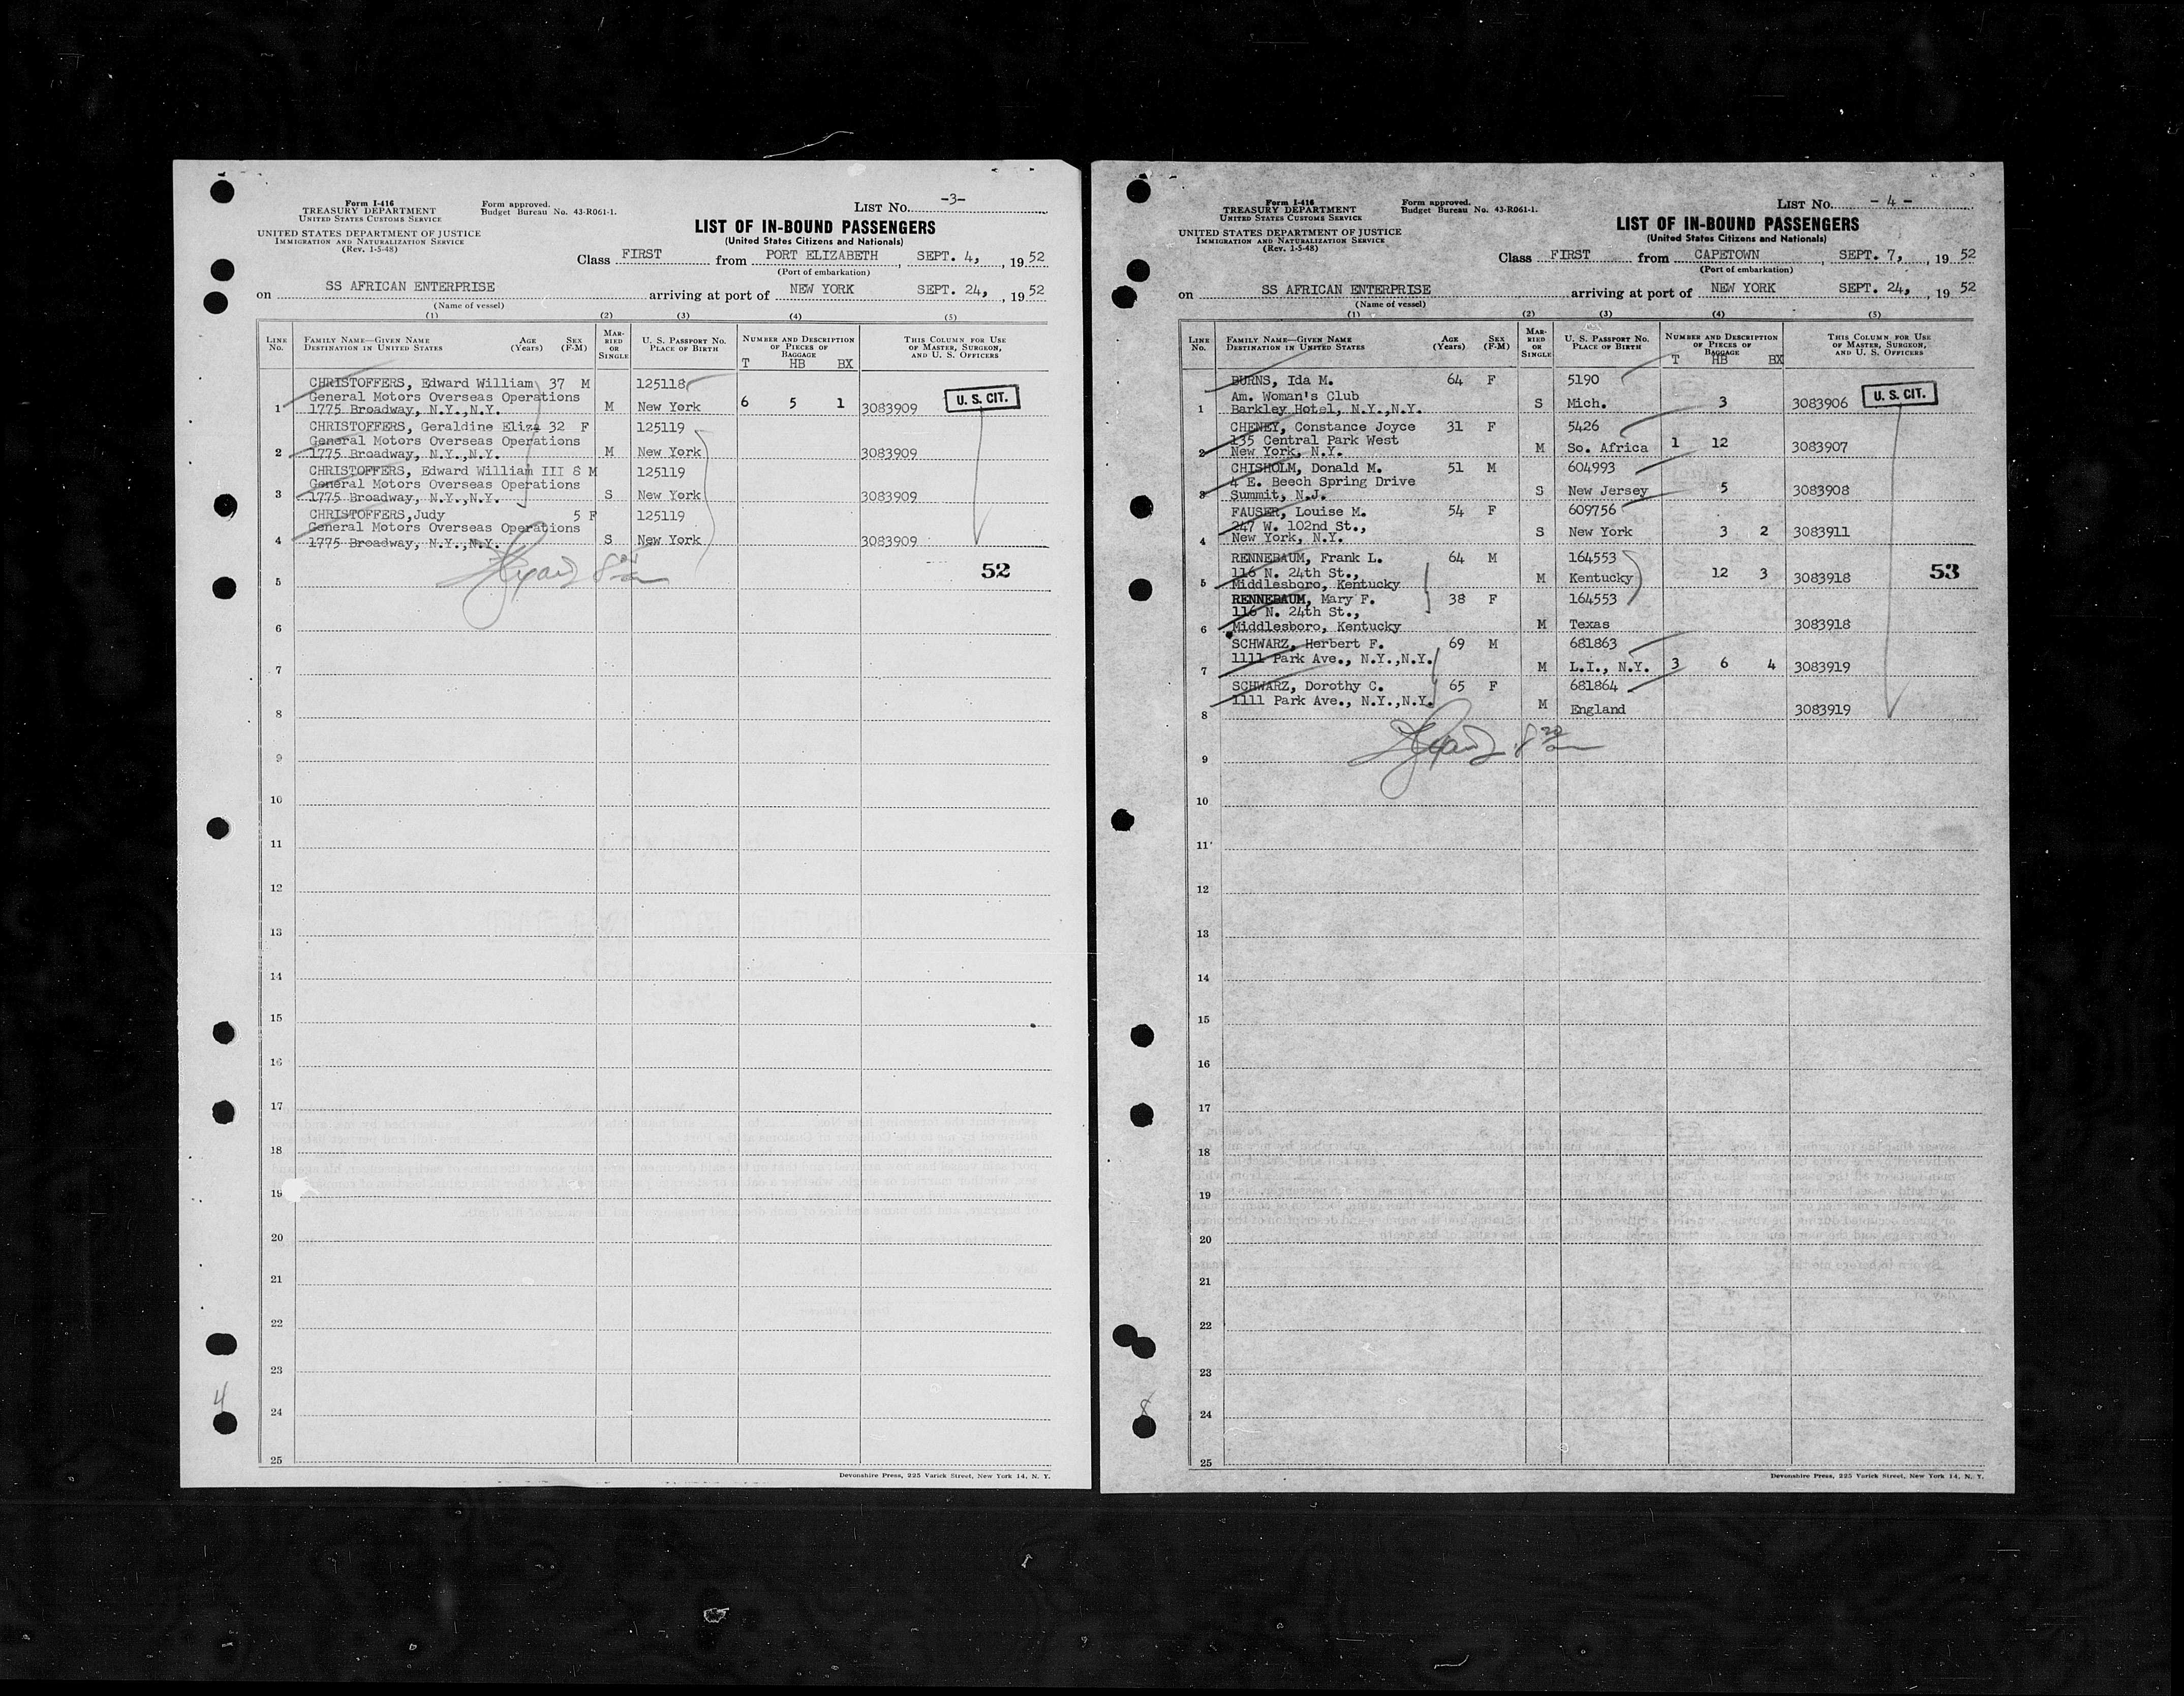 Form I-416
TREASURY DEPARTMENT
UNITED STATES CUSTOMS SERVICE
UNITED STATES DEPARTMENT OF JUSTICE
IMMIGRATION AND NATURALIZATION SERVICE
(Rev. 1-5-48)
Form approved.
Budget Bureau No. 43-R061-1.
LIST No. -3-
LIST OF IN-BOUND PASSENGERS
(United States Citizens and Nationals)
Class FIRST from PORT ELIZABETH, SEPT. 4, , 19 52
(Port of embarkation)
on SS AFRICAN ENTERPRISE arriving at port of NEW YORK SEPT. 24, , 19 52
(Name of vessel)
(1) (2) (3) (4) (5)
LINE No. FAMILY NAME—GIVEN NAME DESTINATION IN UNITED STATES AGE (Years) SEX (F-M) MARRIED OR SINGLE U. S. PASSPORT No. PLACE OF BIRTH NUMBER AND DESCRIPTION OF PIECES OF BAGGAGE THIS COLUMN FOR USE OF MASTER, SURGEON, AND U. S. OFFICERS
T HB BX
CHRISTOFFERS, Edward William 37 M 125118
General Motors Overseas Operations
1 1775 Broadway, N.Y.,N.Y. M New York 6 5 1 3083909 U. S. CIT.
CHRISTOFFERS, Geraldine Eliza 32 F 125119
General Motors Overseas Operations
2 1775 Broadway, N.Y.,N.Y. M New York 3083909
CHRISTOFFERS, Edward William III 8 M 125119
General Motors Overseas Operations
3 1775 Broadway, N.Y.,N.Y. S New York 3083909
CHRISTOFFERS,Judy 5 F 125119
General Motors Overseas Operations
4 1775 Broadway, N.Y.,N.Y. S New York 3083909
52
5
6
7
8
9
10
11
12
13
14
15
16
17
18
19
20
21
22
23
24
25
4
Devonshire Press, 225 Varick Street, New York 14, N. Y.
Form I-416
TREASURY DEPARTMENT
UNITED STATES CUSTOMS SERVICE
UNITED STATES DEPARTMENT OF JUSTICE
IMMIGRATION AND NATURALIZATION SERVICE
(Rev. 1-5-48)
Form approved.
Budget Bureau No. 43-R061-1.
LIST No. - 4 -
LIST OF IN-BOUND PASSENGERS
(United States Citizens and Nationals)
Class FIRST from CAPETOWN , SEPT. 7, , 19 52
(Port of embarkation)
on SS AFRICAN ENTERPRISE arriving at port of NEW YORK SEPT. 24, , 19 52
(Name of vessel)
(1) (2) (3) (4) (5)
LINE No. FAMILY NAME—GIVEN NAME DESTINATION IN UNITED STATES AGE (Years) SEX (F-M) MARRIED OR SINGLE U. S. PASSPORT No. PLACE OF BIRTH NUMBER AND DESCRIPTION OF PIECES OF BAGGAGE THIS COLUMN FOR USE OF MASTER, SURGEON, AND U. S. OFFICERS
T HB BX
BURNS, Ida M. 64 F 5190
Am. Woman's Club
1 Barkley Hotel, N.Y.,N.Y. S Mich. 3 3083906 U. S. CIT.
CHENEY, Constance Joyce 31 F 5426
135 Central Park West
2 New York, N.Y. M So. Africa 1 12 3083907
CHISHOLM, Donald M. 51 M 604993
4 E. Beech Spring Drive
3 Summit, N.J. S New Jersey 5 3083908
FAUSER, Louise M. 54 F 609756
247 W. 102nd St.,
4 New York, N.Y. S New York 3 2 3083911
RENNEBAUM, Frank L. 64 M 164553
116 N. 24th St.,
5 Middlesboro, Kentucky M Kentucky 12 3 3083918 53
RENNEBAUM, Mary F. 38 F 164553
116 N. 24th St.,
6 Middlesboro, Kentucky M Texas 3083918
SCHWARZ, Herbert F. 69 M 681863
7 1111 Park Ave., N.Y.,N.Y. M L.I., N.Y. 3 6 4 3083919
SCHWARZ, Dorothy C. 65 F 681864
1111 Park Ave., N.Y.,N.Y.
8 M England 3083919
9
10
11
12
13
14
15
16
17
18
19
20
21
22
23
24
25
8
Devonshire Press, 225 Varick Street, New York 14, N. Y.